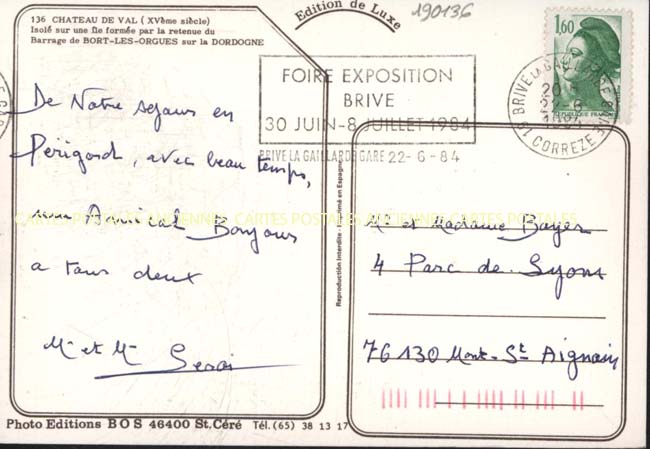 136 CHATEAU DE VAL (XVème siècle)
Isolé sur une île formée par la retenue du
Barrage de BORT-LES-ORGUES sur la DORDOGNE
Edition de Luxe
190136
1,60
REPUBLIQUE FRANCAISE
FOIRE EXPOSITION
BRIVE
30 JUIN-8 JUILLET 1984
BRIVE LA GAILLARDE GARE 22-6-84
BRIVE LA GAILLARDE GARE
20
22-6
1984
19 CORREZE
De Notre sejours en
Périgord, avec beau temps,
un Amical Bonjours
a tous deux
Mr et Me
CARTES POSTALES ANCIENNES CARTES POSTALES ANCIENNES CARTES POSTALES
Reproduction Interdite - Imprimé en Espagne
Mr et Madame Bayer
4 Parc de Lyons
76130 Mont-St Aignan
Photo Editions BOS 46400 St.Céré Tél.(65) 38 13 17